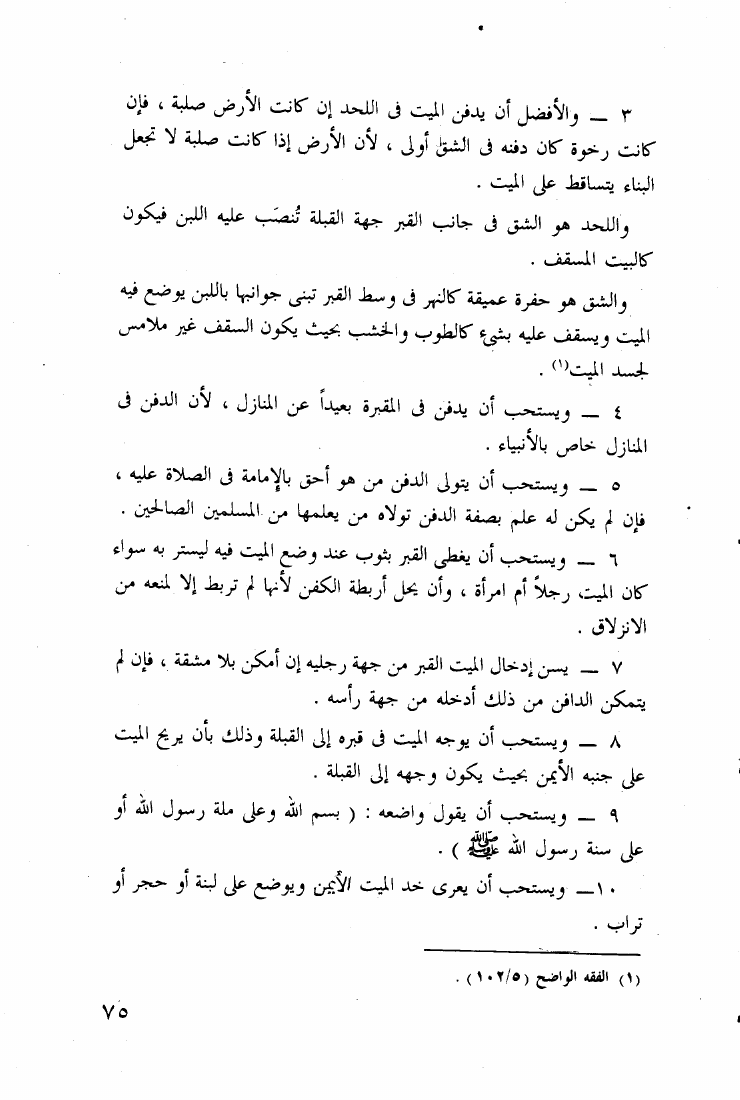 ٣ ــ والأفضل أن يدفن الميت فى اللحد إن كانت الأرض صلبة ، فإن
كانت رخوة كان دفنه فى الشق أولى ، لأن الأرض إذا كانت صلبة لا تجعل
البناء يتساقط على الميت .
واللحد هو الشق فى جانب القبر جهة القبلة تُنصَب عليه اللبن فيكون
كالبيت المسقف .
والشق هو حفرة عميقة كالنهر فى وسط القبر تبنى جوانبها باللبن يوضع فيه
الميت ويسقف عليه بشيء كالطوب والخشب بحيث يكون السقف غير ملامس
لجسد الميت(١) .
٤ ــ ويستحب أن يدفن فى المقبرة بعيداً عن المنازل ، لأن الدفن فى
المنازل خاص بالأنبياء .
٥ ــ ويستحب أن يتولى الدفن من هو أحق بالإمامة فى الصلاة عليه ،
فإن لم يكن له علم بصفة الدفن تولاه من يعلمها من المسلمين الصالحين .
٦ ــ ويستحب أن يغطى القبر بثوب عند وضع الميت فيه ليستر به سواء
كان الميت رجلاً أم امرأة ، وأن يحل أربطة الكفن لأنها لم تربط إلا لمنعه من
الانزلاق .
٧ ــ يسن إدخال الميت القبر من جهة رجليه إن أمكن بلا مشقة ، فإن لم
يتمكن الدافن من ذلك أدخله من جهة رأسه .
٨ ــ ويستحب أن يوجه الميت فى قبره إلى القبلة وذلك بأن يريح الميت
على جنبه الأيمن بحيث يكون وجهه إلى القبلة .
٩ ــ ويستحب أن يقول واضعه : ( بسم الله وعلى ملة رسول الله أو
على سنة رسول الله ﷺ ) .
١٠ــ ويستحب أن يعرى خد الميت الأيمن ويوضع على لبنة أو حجر أو
تراب .
(١) الفقه الواضح (١٠٢/٥) .
٧٥